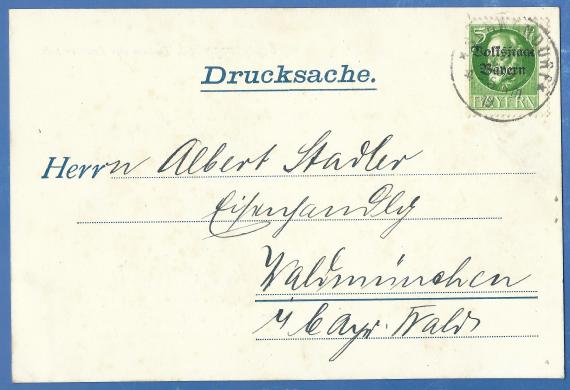 5
Volksstaat
Bayern
BAYERN
Drucksache.
Herrn Albert Stadler
Eisenhandlg
Waldmünchen
Bayr. Wald